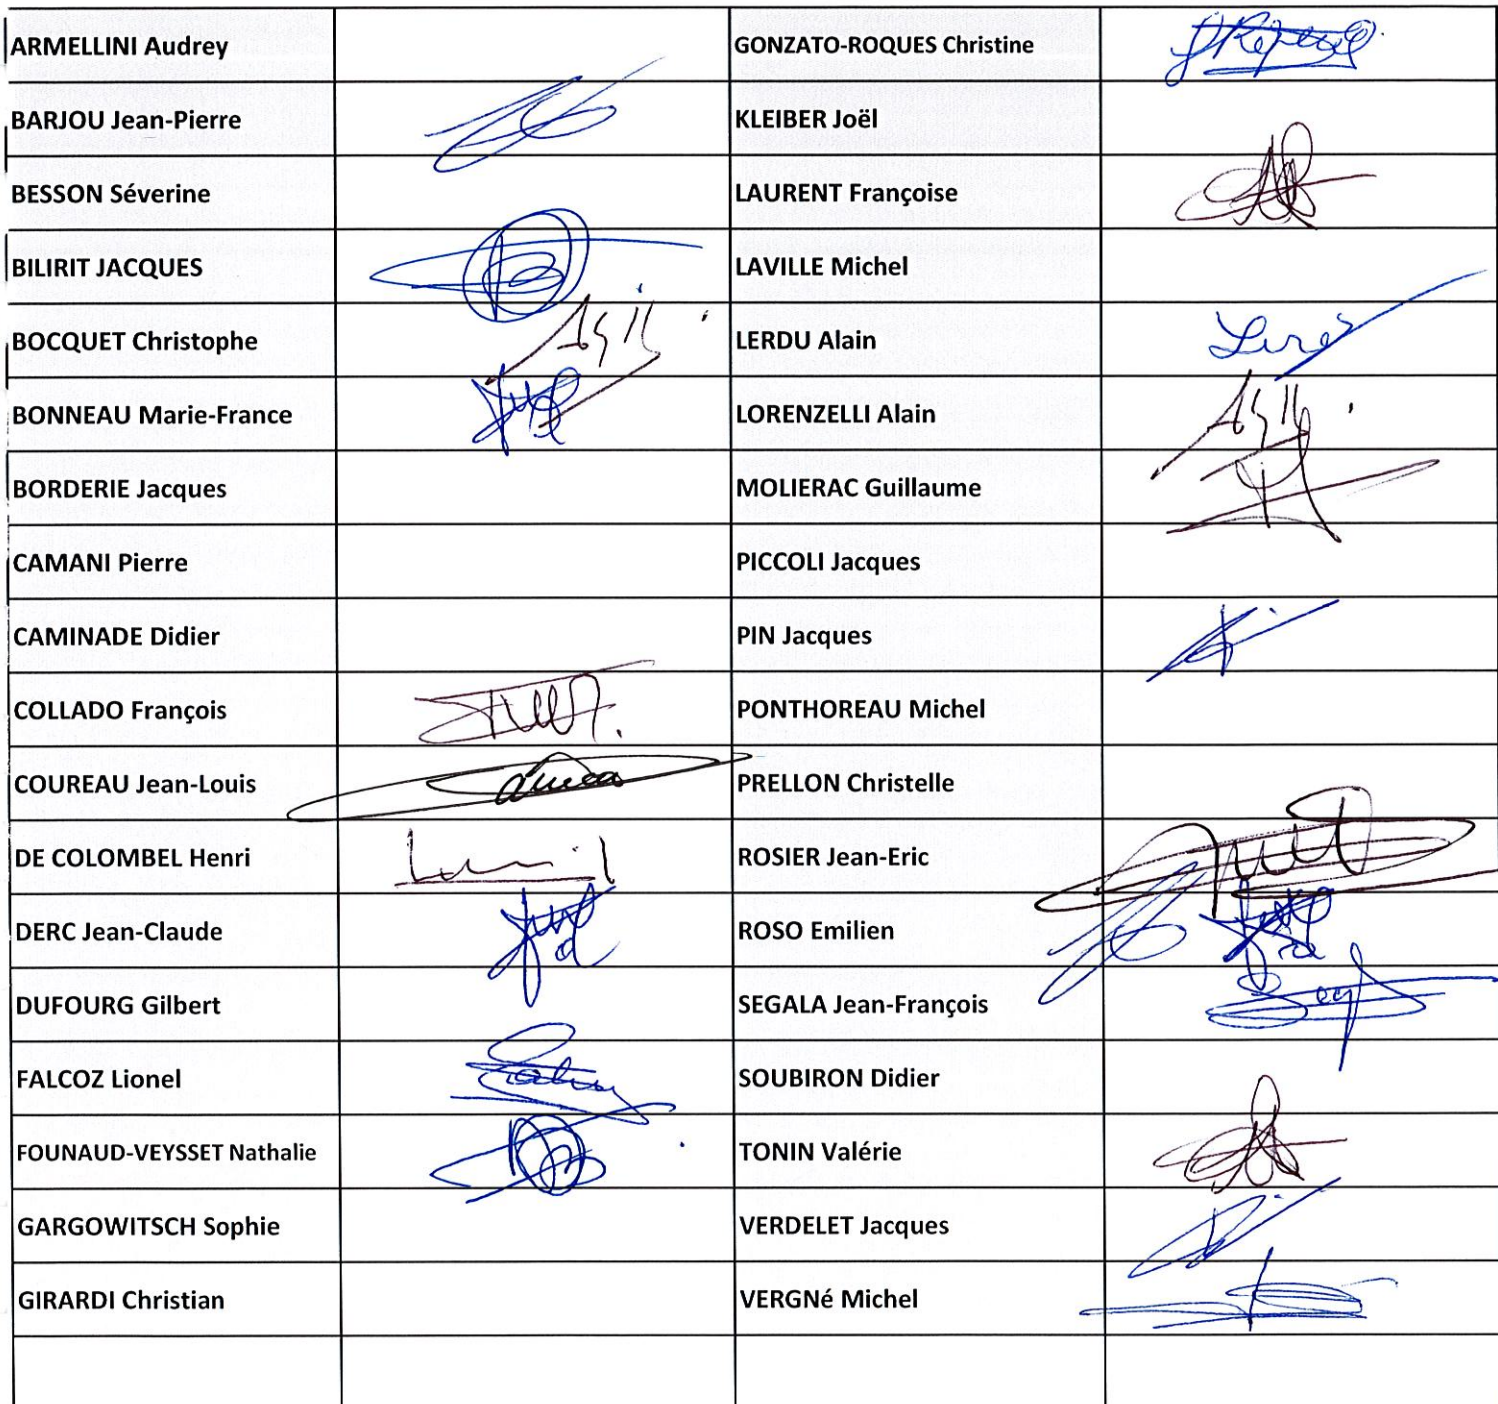 ARMELLINI Audrey
GONZATO-ROQUES Christine
BARJOU Jean-Pierre
KLEIBER Joël
BESSON Séverine
LAURENT Françoise
BILIRIT JACQUES
LAVILLE Michel
BOCQUET Christophe
LERDU Alain
BONNEAU Marie-France
LORENZELLI Alain
BORDERIE Jacques
MOLIERAC Guillaume
CAMANI Pierre
PICCOLI Jacques
CAMINADE Didier
PIN Jacques
COLLADO François
PONTHOREAU Michel
COUREAU Jean-Louis
PRELLON Christelle
DE COLOMBEL Henri
ROSIER Jean-Eric
DERC Jean-Claude
ROSO Emilien
DUFOURG Gilbert
SEGALA Jean-François
FALCOZ Lionel
SOUBIRON Didier
FOUNAUD-VEYSSET Nathalie
TONIN Valérie
GARGOWITSCH Sophie
VERDELET Jacques
GIRARDI Christian
VERGNé Michel